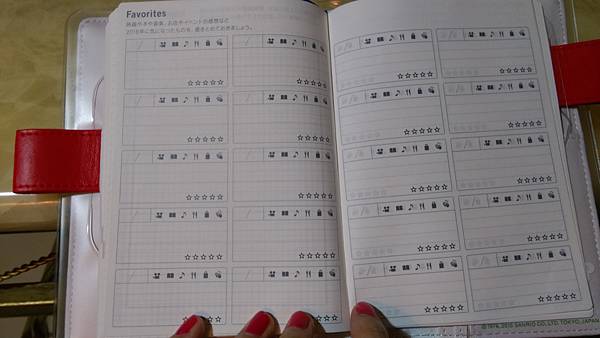 Favorites
映画や本や音楽、お店やイベントの感想など
2016年に気になったものを、書きとめておきましょう。
© 1976, 2015 SANRIO CO., LTD. TOKYO, JAPAN